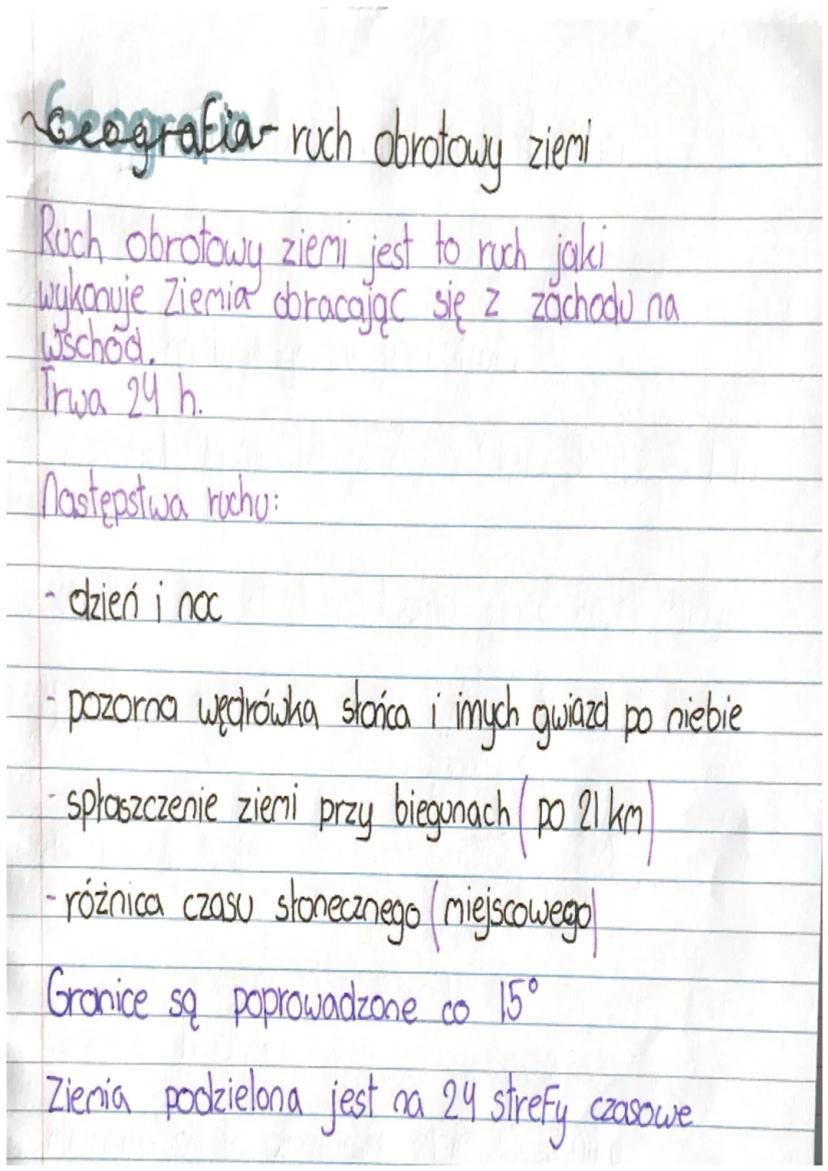 Geografia - ruch obrotowy ziemi
Ruch obrotowy ziemi jest to ruch jaki
wykonuje Ziemia obracając się z zachodu na
wschód.
Trwa 24 h.
Następstwa ruchu:
- dzień i noc
- pozorna wędrówka słońca i innych gwiazd po niebie
- spłaszczenie ziemi przy biegunach (po 21 km)
- różnica czasu słonecznego (miejscowego)
Granice są poprowadzone co 15°
Ziemia podzielona jest na 24 strefy czasowe